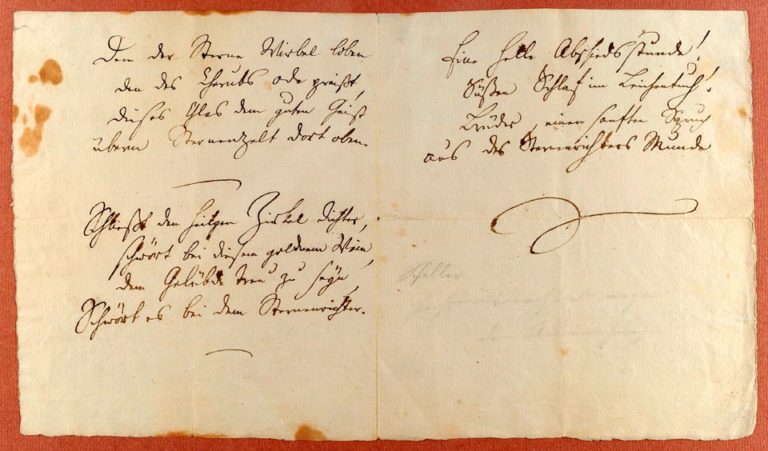 Den der Sterne Wirbel loben
den des Cherubs Ode preißt,
dieses Glas dem guten Geist
überm Sternenzelt dort oben.
Schließt den heilgen Zirkel dichter,
schwört bei diesem goldnem Wein
dem Gelübde treu zu seyn
Schwört es bei dem Sternenrichter.
Eine heitre Abschiedsstunde!
Süßen Schlaf im Leichentuch!
Brüder, einen sanften Spruch
aus des Sternenrichters Munde
Schiller